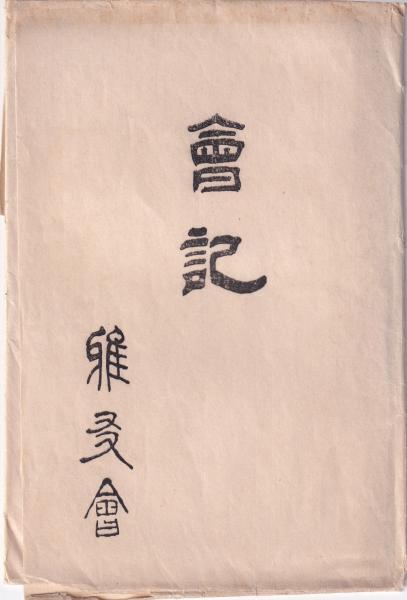 會記
雅友會